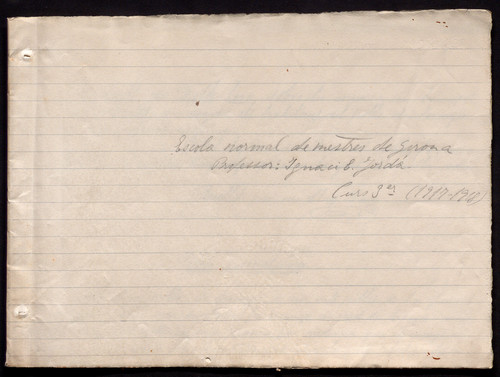 Escola normal de mestres de Girona
Professor: Ignaci E. Jordá
Curs 3er (1917-1918)